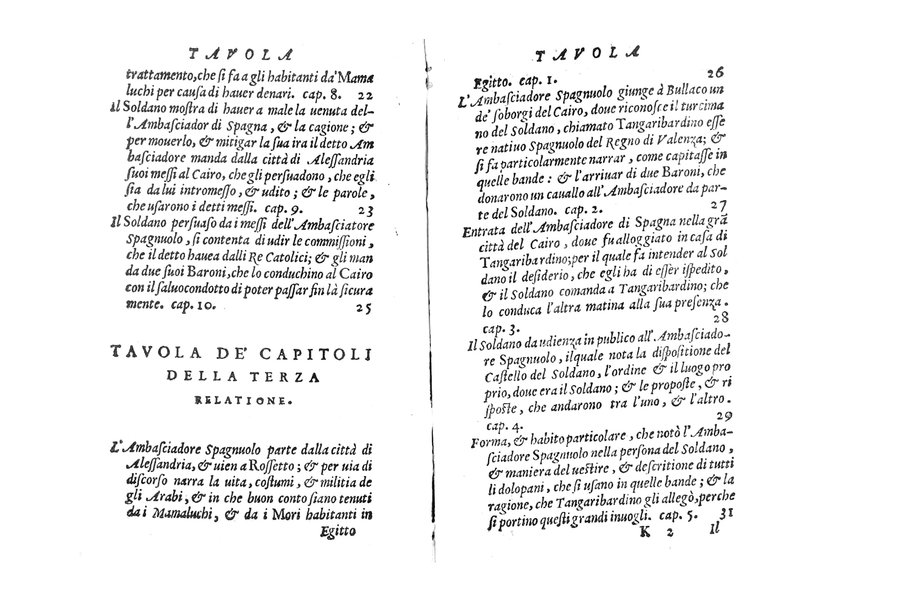 TAVOLA
trattamento, che si fa a gli habitanti da' Mama
luchi per causa di hauer denari. cap. 8. 22
Il Soldano mostra di hauer a male la uenuta del-
l'Ambasciador di Spagna, & la cagione; &
per mouerlo, & mitigar la sua ira il detto Am
basciadore manda dalla città di Alessandria
suoi messi al Cairo, che gli persuadono, che egli
sia da lui intromesso, & udito; & le parole,
che usarono i detti messi. cap. 9. 23
Il Soldano persuaso da i messi dell'Ambasciatore
Spagnuolo, si contenta di udir le commissioni,
che il detto hauea dalli Re Catolici; & gli man
da due suoi Baroni, che lo conduchino al Cairo
con il saluocondotto di poter passar fin là sicura
mente. cap. 10. 25
TAVOLA DE' CAPITOLI
DELLA TERZA
RELATIONE.
L'Ambasciadore Spagnuolo parte dalla città di
Alessandria, & uien a Rossetto; & per uia di
discorso narra la uita, costumi, & militia de
gli Arabi, & in che buon conto siano tenuti
da i Mamaluchi, & da i Mori habitanti in
Egitto
TAVOLA
Egitto. cap. 1. 26
L'Ambasciadore Spagnuolo giunge à Bullaco un
de' soborgi del Cairo, doue riconosce il turcima
no del Soldano, chiamato Tangaribardino esse
re natiuo Spagnuolo del Regno di Valenza; &
si fa particolarmente narrar, come capitasse in
quelle bande: & l'arriuar di due Baroni, che
donarono un cauallo all'Ambasciadore da par-
te del Soldano. cap. 2. 27
Entrata dell'Ambasciadore di Spagna nella grã
città del Cairo, doue fu alloggiato in casa di
Tangaribardino; per il quale fa intender al Sol
dano il desiderio, che egli ha di esser ispedito,
& il Soldano comanda a Tangaribardino; che
lo conduca l'altra matina alla sua presenza.
cap. 3. 28
Il Soldano da udienza in publico all'Ambasciado-
re Spagnuolo, il quale nota la dispositione del
Castello del Soldano, l'ordine & il luogo pro
prio, doue era il Soldano; & le proposte, & ri
sposte, che andarono tra l'uno, & l'altro.
cap. 4. 29
Forma, & habito particolare, che notò l'Amba-
sciadore Spagnuolo nella persona del Soldano,
& maniera del uestire, & descritione di tutti
li dolopani, che si usano in quelle bande; & la
ragione, che Tangaribardino gli allegò, perche
si portino questi grandi inuogli. cap. 5. 31
K 2 Il